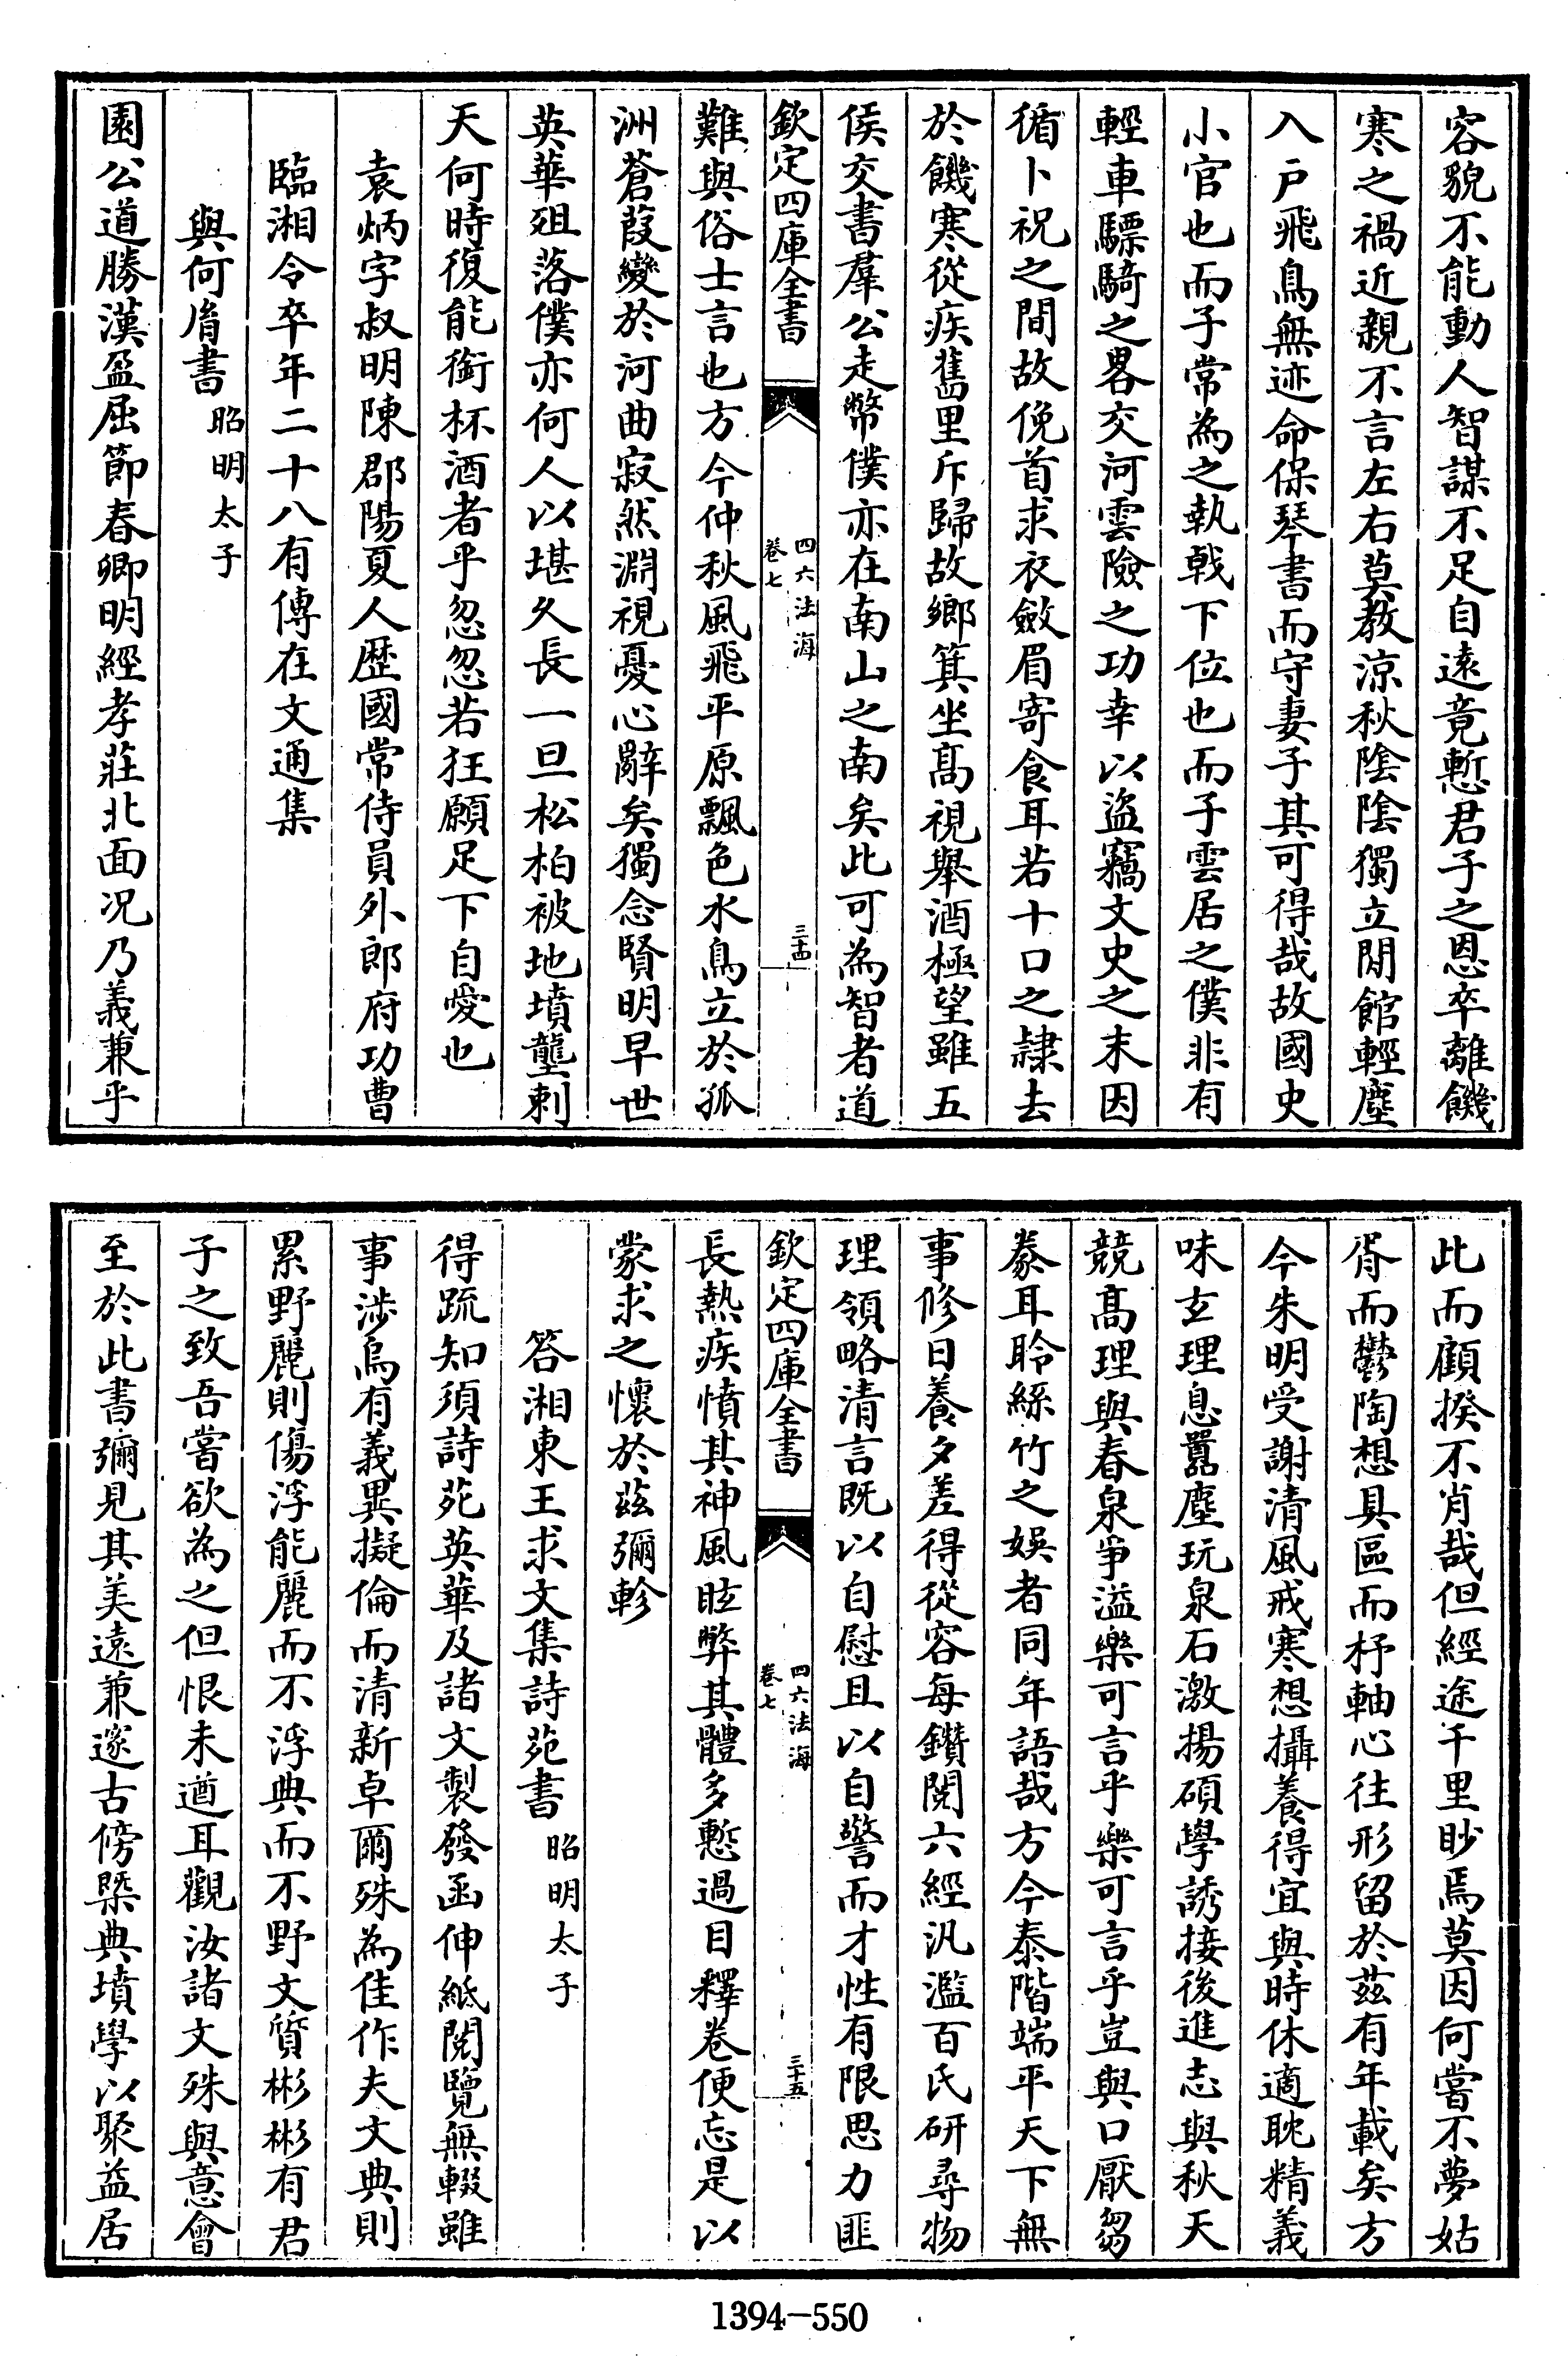 容貌不能動人智謀不足自遠竟慙君子之恩卒離饑
寒之禍近親不言左右莫教涼秋陰陰獨立閒館輕塵
入戶飛鳥無迹命保琴書而守妻子其可得哉故國史
小官也而子常為之執戟下位也而子雲居之僕非有
輕車驃騎之畧交河雲險之功幸以盜竊文史之末因
循卜祝之間故俛首求衣斂眉寄食耳若十口之隷去
於饑寒從疾舊里斥歸故鄉箕坐髙視舉酒極望雖五
侯交書羣公走幣僕亦在南山之南矣此可為智者道
欽定四庫全書
四六法海
卷七
三十四
難與俗士言也方今仲秋風飛平原飄色水鳥立於孤
洲蒼葭變於河曲寂然淵視憂心辭矣獨念賢明早世
英華殂落僕亦何人以堪久長一旦松柏被地墳壟刺
天何時復能銜杯酒者乎忽忽若狂願足下自愛也
袁炳字叔明陳郡陽夏人歴國常侍員外郎府功曹
臨湘令卒年二十八有傳在文通集
與何胤書昭明太子
園公道勝漢盈屈節春卿明經孝莊北面况乃義兼乎
此而顧揆不肖哉但經途千里眇焉莫因何嘗不夢姑
胥而鬱陶想具區而杼軸心往形留於茲有年載矣方
今朱明受謝清風戒寒想攝養得宜與時休適耽精義
味玄理息囂塵玩泉石激揚碩學誘接後進志與秋天
競髙理與春泉爭溢樂可言乎樂可言乎豈與口厭芻
豢耳聆絲竹之娛者同年語哉方今泰階端平天下無
事修日養夕差得從容每鑽閱六經汎濫百氏研尋物
理領略清言既以自慰且以自警而才性有限思力匪
欽定四庫全書
四六法海
卷七
三十五
長熱疾憤其神風眩弊其體多慙過目釋卷便忘是以
蒙求之懷於茲彌軫
答湘東王求文集詩苑書昭明太子
得疏知須詩苑英華及諸文製發函伸紙閱覽無輟雖
事涉烏有義異擬倫而清新卓爾殊為佳作夫文典則
累野麗則傷浮能麗而不浮典而不野文質彬彬有君
子之致吾嘗欲為之但恨未遒耳觀汝諸文殊與意會
至於此書彌見其美遠兼邃古傍槩典墳學以聚益居
1394-550